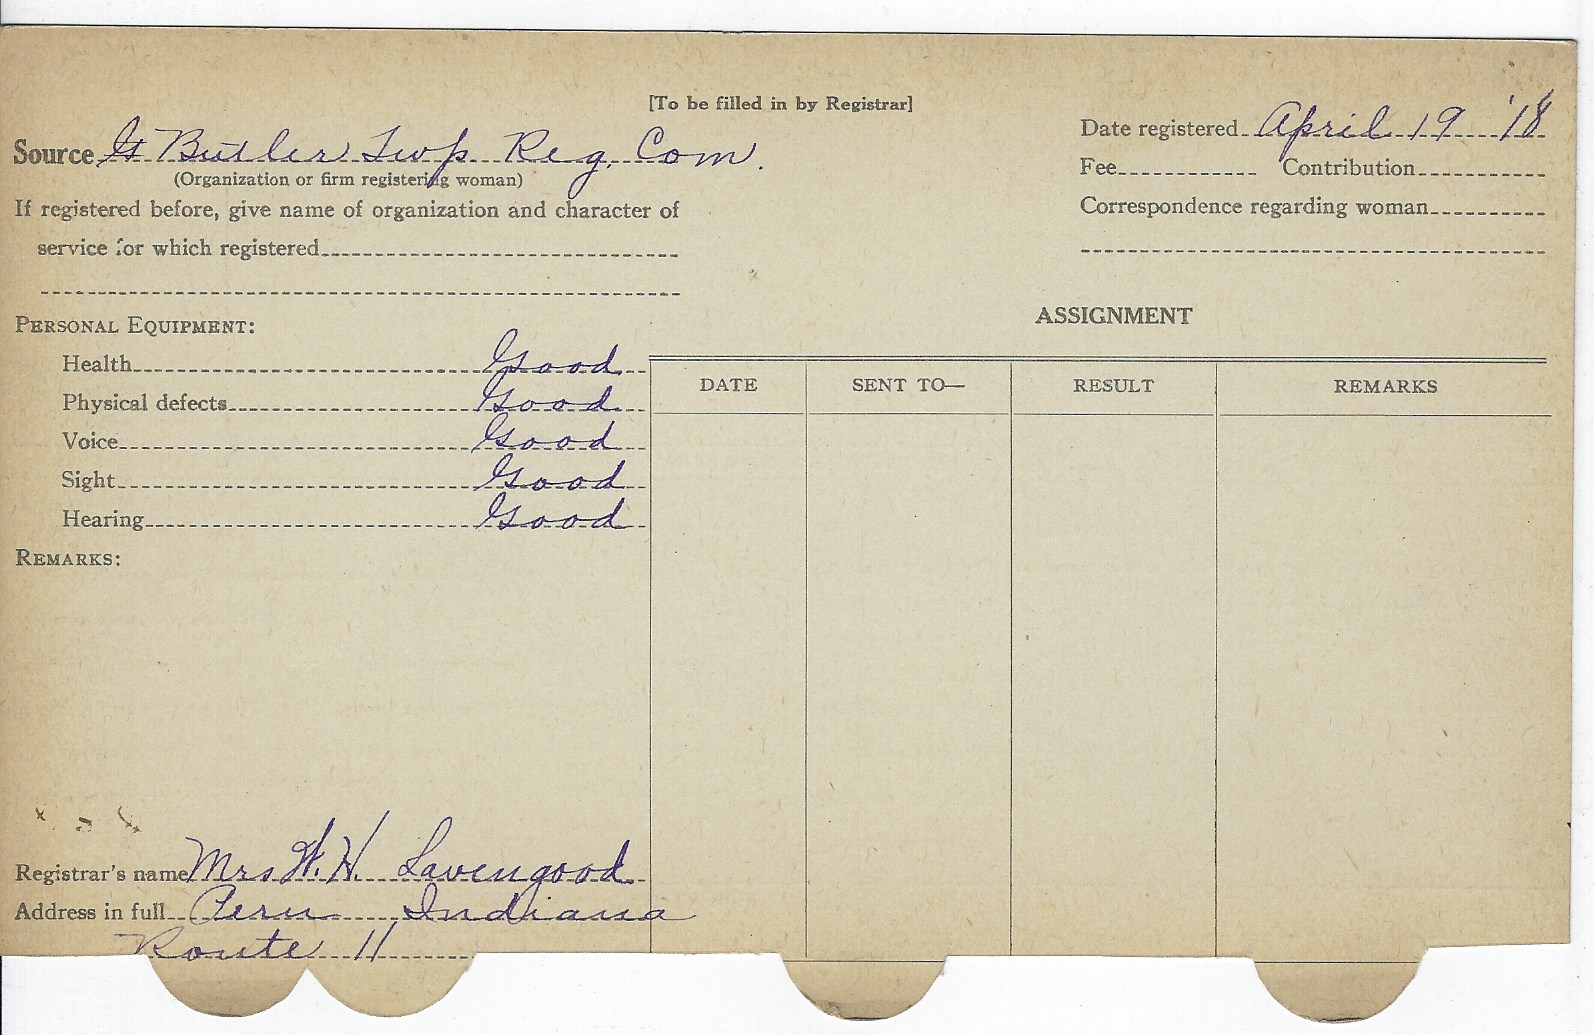 [To be filled in by Registrar]
Date registered April 19 '18
Source Butler Twp Reg. Com.
(Organization or firm registering woman)
Fee Contribution
If registered before, give name of organization and character of
service for which registered
Correspondence regarding woman
ASSIGNMENT
PERSONAL EQUIPMENT:
Health Good
Physical defects Good
Voice Good
Sight Good
Hearing Good
DATE SENT TO— RESULT REMARKS
REMARKS:
Registrar's name Mrs W. H. Lavengood
Address in full Peru Indiana
Route 11